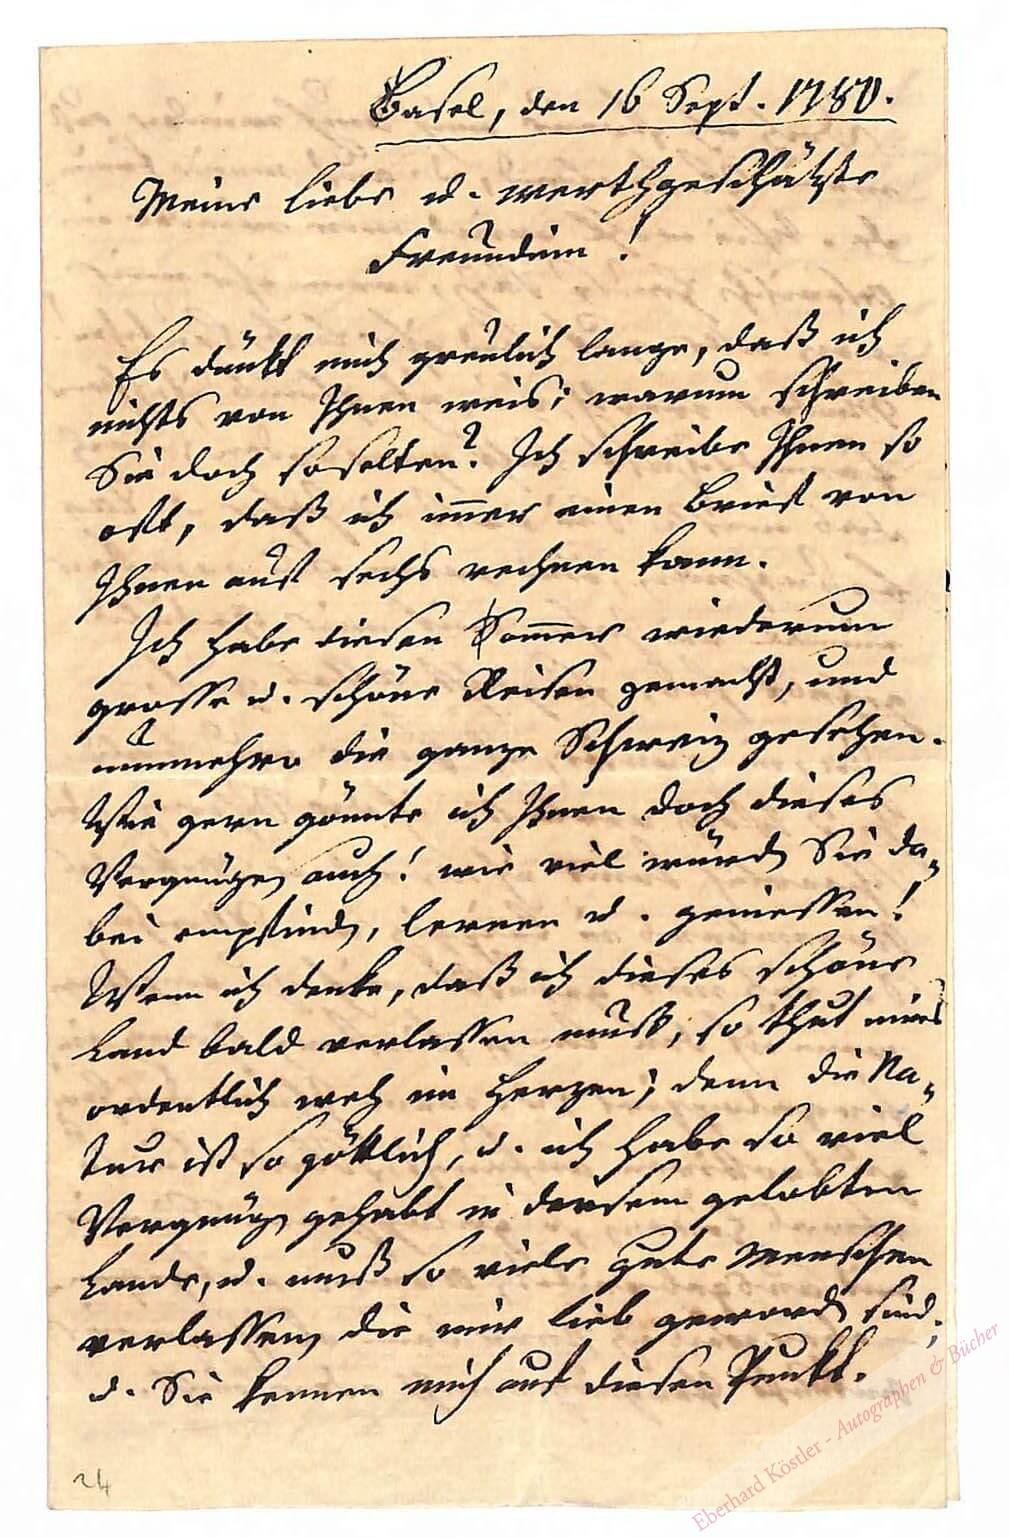 Basel, den 16 Sept. 1780.
Meine liebe u. werthgeschätzte
Freundinn!
Es dünkt mich greulich lange, daß ich
nichts von Ihnen weis; warum schreiben
Sie doch so selten? Ich schreibe Ihnen so
oft, daß ich im̅er einen Brief von
Ihnen auf sechs rechnen kann.
Ich habe diesen Som̅er wiederum
grosse u. schöne Reisen gemacht, und
nunmehro die ganze Schweiz gesehen.
Wie gern gönnte ich Ihnen doch dieses
Vergnügen auch! wie viel würden Sie da-
bei empfinden, lernen u. geniessen!
Wenn ich denke, daß ich dieses schöne
Land bald verlassen muß, so thut mirs
ordentlich weh im Herzen; denn die Na-
tur ist so göttlich, u. ich habe so viel
Vergnügen gehabt in diesem gelobten
Lande, u. muß so viele gute Menschen
verlassen, die mir lieb geworden sind;
u. Sie kennen mich auf diesen Punkt.
24
Eberhard Köstler - Autographen & Bücher